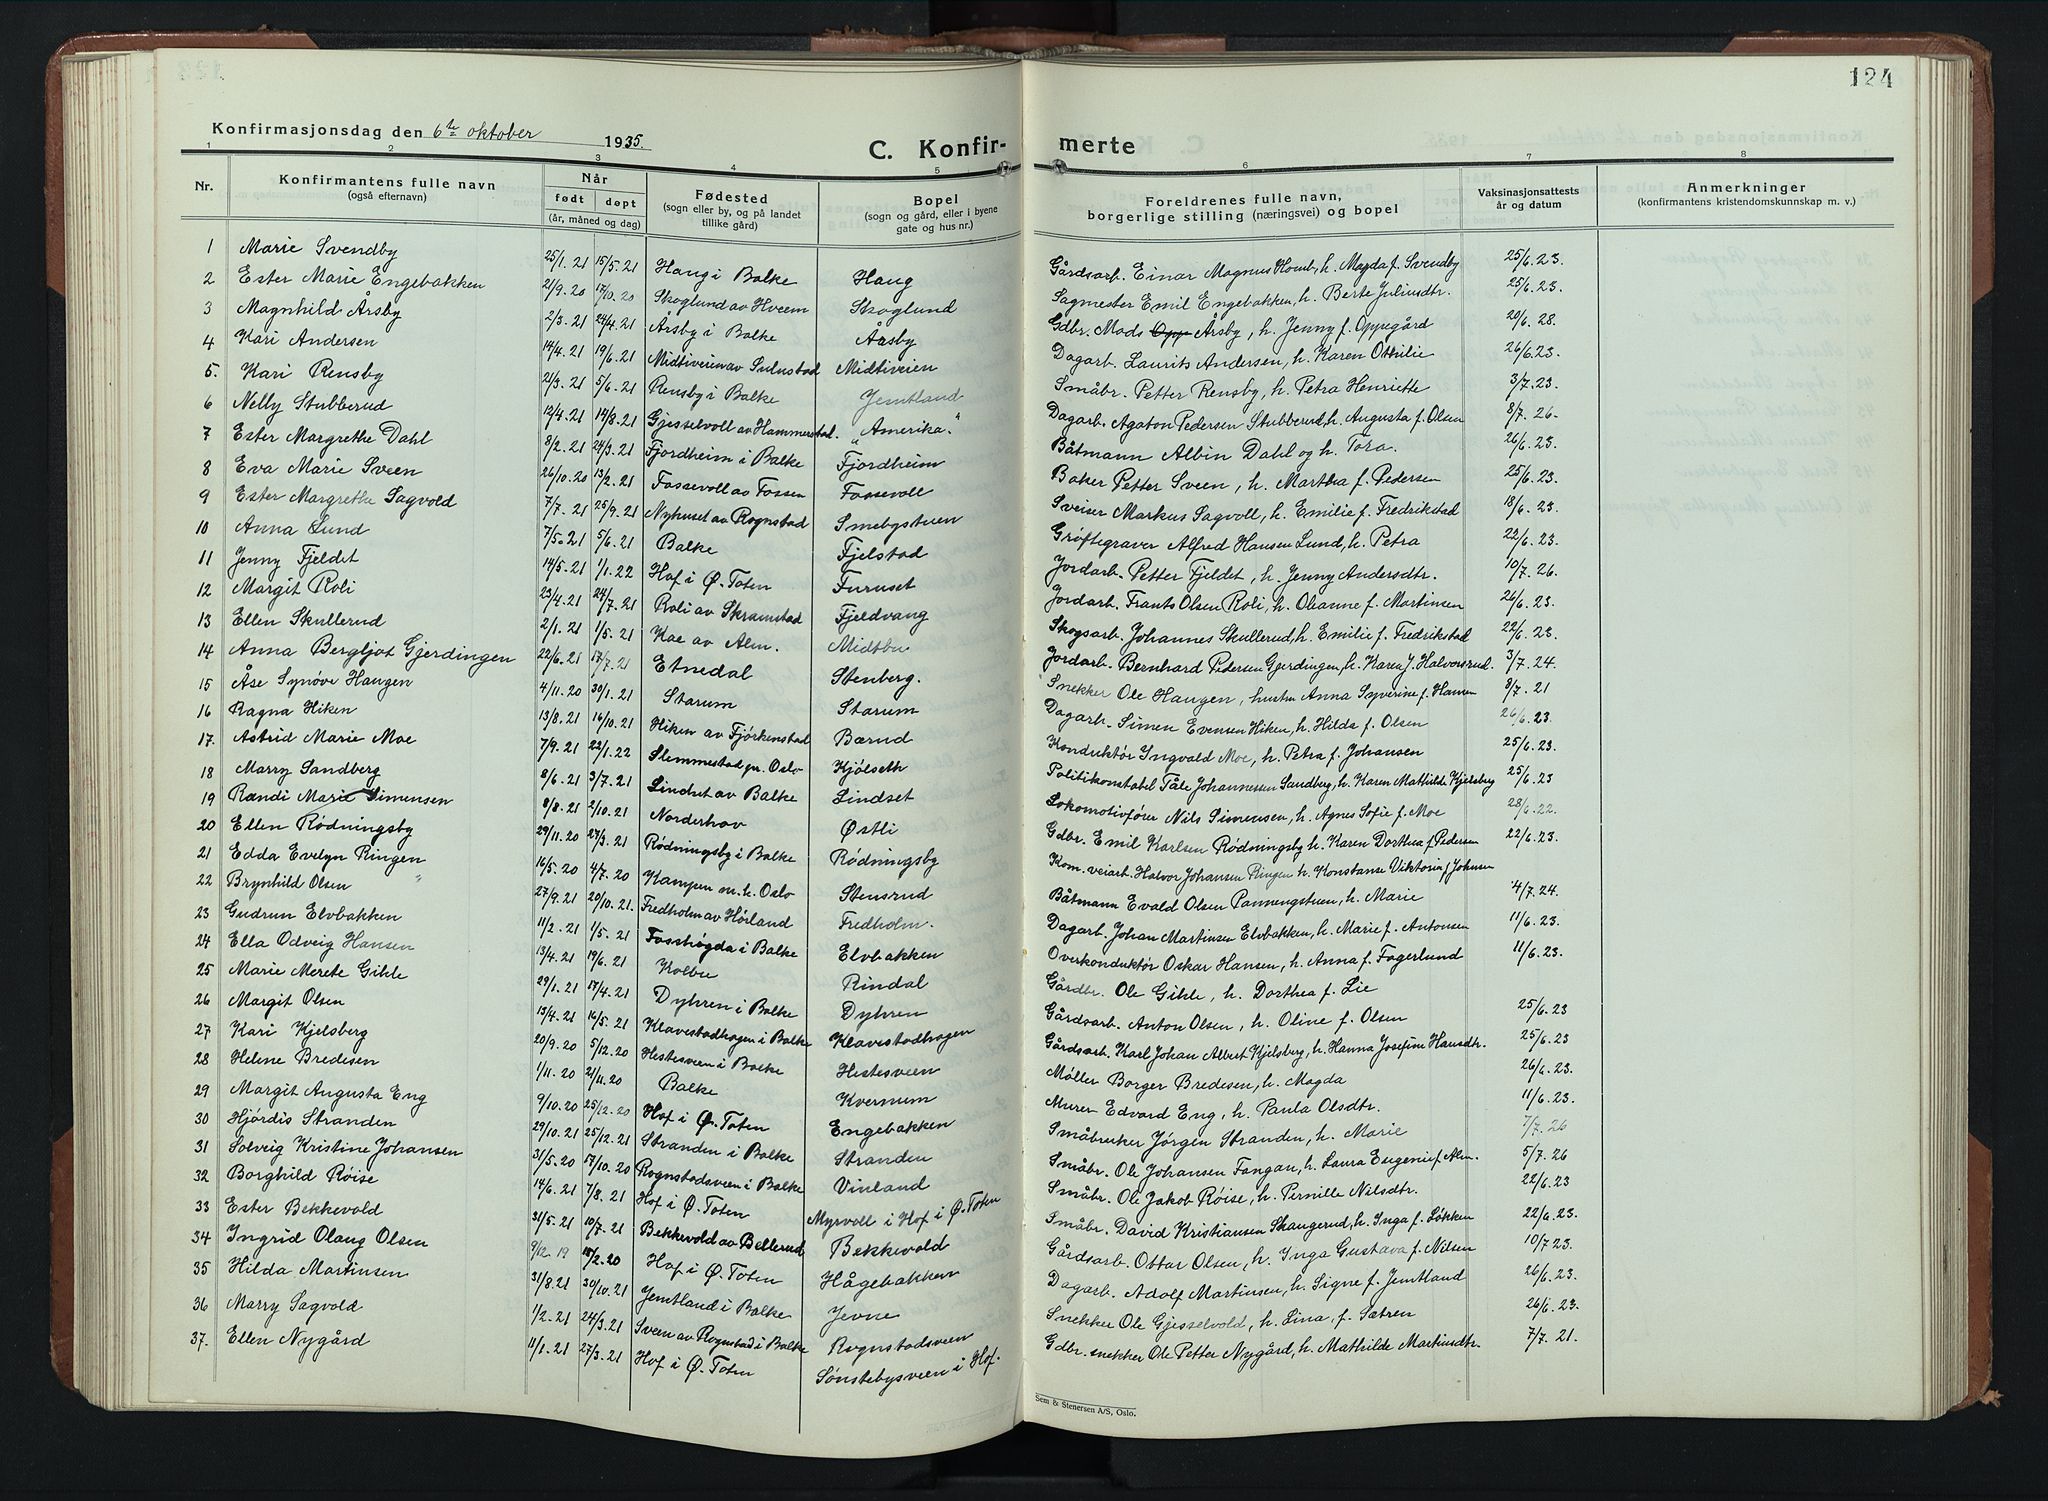 124
Konfirmasjonsdag den 6te oktober 1935.
C. Konfir-merte
1 2 3 4 5 6 7 8
Nr.
Konfirmantens fulle navn
(også efternavn)
Når
født døpt
(år, måned og dag)
Fødested
(sogn eller by, og på landet
tillike gård)
Bopel
(sogn og gård, eller i byene
gate og hus nr.)
Foreldrenes fulle navn,
borgerlige stilling (næringsvei) og bopel
Vaksinasjonsattests
år og datum
Anmerkninger
(konfirmantens kristendomskunnskap m. v.)
1 Marie Svendby 25/1. 21 15/5. 21 Haug i Balke Haug Gårdsarb. Einar Magnus Homb, h. Magda f. Svendby 25/6. 23.
2 Ester Marie Engebakken 2/9. 20 17/10. 20 Skoglund av Hveem Skoglund Sagmester Emil Engebakken, h. Berte Juliusdtr. 25/6. 23.
3 Magnhild Årsby 2/3. 21 24/4. 21 Årsby i Balke Årsby Gdbr. Mads Opp Årsby, h. Jenny f. Oppegård 20/6. 28.
4 Kari Andersen 14/4. 21 19/6. 21 Midtiveien av Sulustad Midtiveien Dagarb. Laurits Andersen, h. Karen Othilie 26/6. 23.
5. Kari Rensby 21/3. 21 5/6. 21 Rensby i Balke Jemtland Småbr. Petter Rensby, h. Petra Henriette 3/7. 23.
6 Nelly Stubberud 12/4. 21 14/8. 21 Gjesselvoll av Hammerstad. "Amerika." Dagarb. Agaton Pedersen Stubberud, h. Augusta f. Olsen 8/7. 26.
7 Ester Margrethe Dahl 8/2. 21 24/3. 21 Fjordheim i Balke Fjordheim Båtmann Albin Dahl og h. Tora. 26/6. 23.
8 Eva Marie Sveen 26/10. 20 13/2. 21 Fossevoll av Fossen Fossevoll Baker Petter Sveen, h. Martha f. Pedersen 25/6. 23.
9 Ester Margrethe Sagvold 7/7. 21 25/9. 21 Nyhuset av Rognstad Smebystuen Sveiser Markus Sagvoll, h. Emilie f. Fredrikstad 18/6. 23.
10 Anna Lund 7/5. 21 5/6. 21 Balke Fjelstad Grøftegraver Alfred Hansen Lund, h. Petra 22/6. 23.
11 Jenny Fjeldet 14/5. 21 1/1. 22 Hof i Ø. Toten Furuset Jordarb. Petter Fjeldet, h. Jenny Andersdtr. 10/7. 26.
12 Margit Roli 23/4. 21 24/7. 21 Roli av Skramstad Fjeldvang Jordarb. Frants Olsen Roli, h. Oleanne f. Martinsen 26/6. 23.
13 Ellen Skullerud 2/1. 21 1/5. 21 Kae av Alm. Midtbu Skogsarb. Johannes Skullerud, h. Emilie f. Fredrikstad 22/6. 23.
14 Anna Bergljot Gjerdingen 22/6. 21 17/7. 21 Etnedal Stenberg. Jordarb. Bernhard Pedersen Gjerdingen, h. Karen J. Halvorsrud. 3/7. 24.
15 Åse Synøve Haugen 4/11. 20 30/1. 21 Starum Starum Snekker Ole Haugen, hustru Anna Syverine f. Hansen 8/7. 21
16 Ragna Hiken 13/8. 21 16/10. 21 Hiken av Fjørkenstad Bærud Dagarb. Simen Evensen Hiken, h. Hilda f. Olsen 26/6. 23.
17. Astrid Marie Moe 7/9. 21 22/1. 22 Slemmestad pr. Oslo Kjølseth Konduktør Ingvald Moe, h. Petra f. Johansen 25/6. 23.
18 Marry Sandberg 8/6. 21 3/7. 21 Lindset av Balke Lindset Politikonstabel Tåle Johannessen Sandberg, h. Karen Mathilde Kjelsberg 25/6. 23
19 Randi Marie Simensen 8/8. 21 2/10. 21 Norderhov Østli Lokomotivfører Nils Simensen, h. Agnes Sofie f. Moe 28/6. 22.
20 Ellen Rødningsby 29/11. 20 27/3. 21 Rødningsby i Balke Rødningsby Gdbr. Emil Karlsen Rødningsby h. Karen Dorthea f. Pedersen 22/6. 23.
21 Edda Evelyn Ringen 16/5. 20 4/7. 20 Kampen m. h. Oslo Stensrud Kom. veiarb. Halvor Johansen Ringen h. Konstanse Viktoria f. Johnsen
22 Brynhild Olsen " 27/9. 21 20/10. 21. Fredholm av Hørland Fredholm. Båtmann Evald Olsen Pannengstuen, h. Marie 4/7. 24.
23 Gudrun Elvbakken 11/2. 21 1/5. 21 Fosshøgda i Balke Elvbakken Dagarb. Johan Martinsen Elvbakken, h. Marie f. Antonsen 11/6. 23.
24 Ella Odveig Hansen 13/4. 21 19/6. 21 Kolbu Rindal Overkonduktør Oskar Hansen, h. Anna f. Fagerlund 11/6. 23.
25 Marie Merete Gihle 29/1. 21 17/4. 21 Dyhren i Balke Dyhren Gårdbr. Ole Gihle, h. Dorthea f. Lie
26 Margit Olsen 13/4. 21 16/5. 21 Klavestadhagen i Balke Klavestadhagen Gårdsarb. Anton Olsen, h. Oline f. Olsen 25/6. 23
27 Kari Kjelsberg 20/9. 20 5/12. 20 Hestesveen i Balke Hestesveen Gårdsarb. Karl Johan Albert Kjelsberg, h. Hanna Josefine Hansdtr. 25/6. 23
28 Helene Bredesen 1/11. 20 21/11. 20 Balke Kvernum Møller Borger Bredesen, h. Magda 26/6. 23.
29 Margit Augusta Eng 9/10. 20 25/12. 20 Hof i Ø. Toten Engebakken Murer Edvard Eng, h. Paula Olsdtr. 11/6. 23.
30 Hjørdis Stranden 29/10. 21 25/12. 21 Stranden i Balke Stranden Småbruker Jørgen Stranden, h. Marie 7/7. 26
31 Solveig Kristine Johansen 31/5. 20 17/10. 20 Rognstadsveen i Balke Vinland Småbr. Ole Johansen Fangan, h. Laura Eugenie f. Alm. 5/7. 26
32 Borghild Røise 14/6. 21 7/8. 21 Hof i Ø. Toten Myrvoll i Hof i Ø. Toten Småbr. Ole Jakob Røise, h. Pernille Nilsdtr. 22/6. 23
33 Ester Bekkevold 31/5. 21 10/7. 21 Bekkevold av Bellerud Bekkevold Småbr. David Kristiansen Skaugerud, h. Inga f. Løkken 22/6. 23.
34 Ingrid Olaug Olsen 9/12. 19 15/2. 20 Hof i Ø. Toten Hågebakken Gårdsarb. Ottar Olsen, h. Inga Gustava f. Nilsen 10/7 23.
35 Hilda Martinsen 31/8. 21 30/10. 21 Jemtland i Balke Jevne Dagarb. Adolf Martinsen, h. Signe f. Jemtland 26/6. 23.
36 Marry Sagvold 1/2. 21 24/3. 21 Sveen av Rognstad i Balke Rognstadsveen Snekker Ole Gjesselvold, h. Lina, f. Sætren 26/6. 23.
37. Ellen Nygård 11/1. 21 27/3. 21 Hof i Ø. Toten Sønstebysveen i Hof. Gdbr. snekker Ole Petter Nygård, h. Mathilde Martinsdtr. 7/7. 21.
Sem & Stenersen A/S, Oslo.